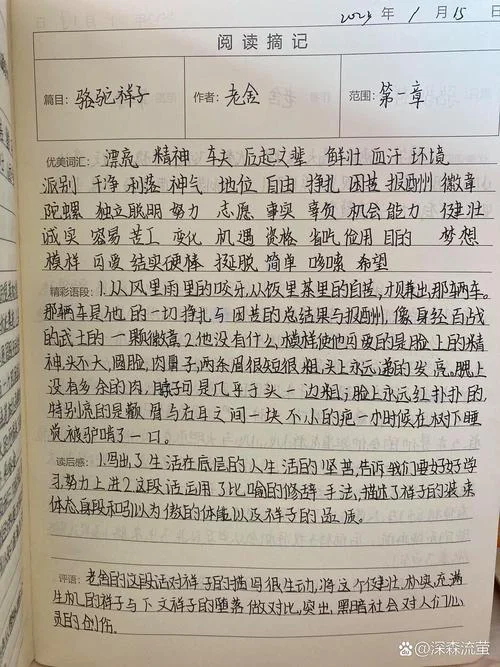 2023 年 1 月 15 日
阅读摘记
篇目：骆驼祥子 作者：老舍 范围：第一章
优美词汇：漂亮 精神 车夫 后起之辈 鲜壮 血汗 环境
派别 干净 利落 神气 地位 自由 挣扎 困苦 报酬州 徽章
陀螺 独立 聪明 努力 志愿 事实 辜负 机会 能力 健壮
诚实 容易 苦工 变化 机遇 资格 省吃俭用 目的 梦想
模样 可爱 结实硬棒 挺脱 简单 哆嗦 希望
精彩语段：1.从风里雨里的咬牙，从饭里茶里的自苦，才赚出那辆车。
那辆车是他的一切挣扎与困苦的总结果与报酬州，像身经百战
的武士的一颗徽章 2.他没有什么，模样使他可爱的是脸上的精
神，头不大，圆眼，肉鼻子，两条眉很短很粗，头上永远剃的发亮。腮上
没有多余的肉，脖子可是几乎于头一边粗；脸上永远红扑扑的，
特别亮的是颧骨与右耳之间一块不小的疤一小时候在树下睡
觉被驴啃了一口。
读后感：1.写出了生活在底层的人生活的坚苦，告诉我们要好好学
习，努力上进 2.这段话运用了比喻的修辞手法，描述了祥子的装束
体态身段和引以为傲的体能以及祥子的品质。
评语：老舍的这段话对祥子的描写很生动，将这个健壮，朴实，充满
生机的祥子与下文祥子的堕落做对比，突出黑暗社会对人们心
灵的创伤。
@深森流萤